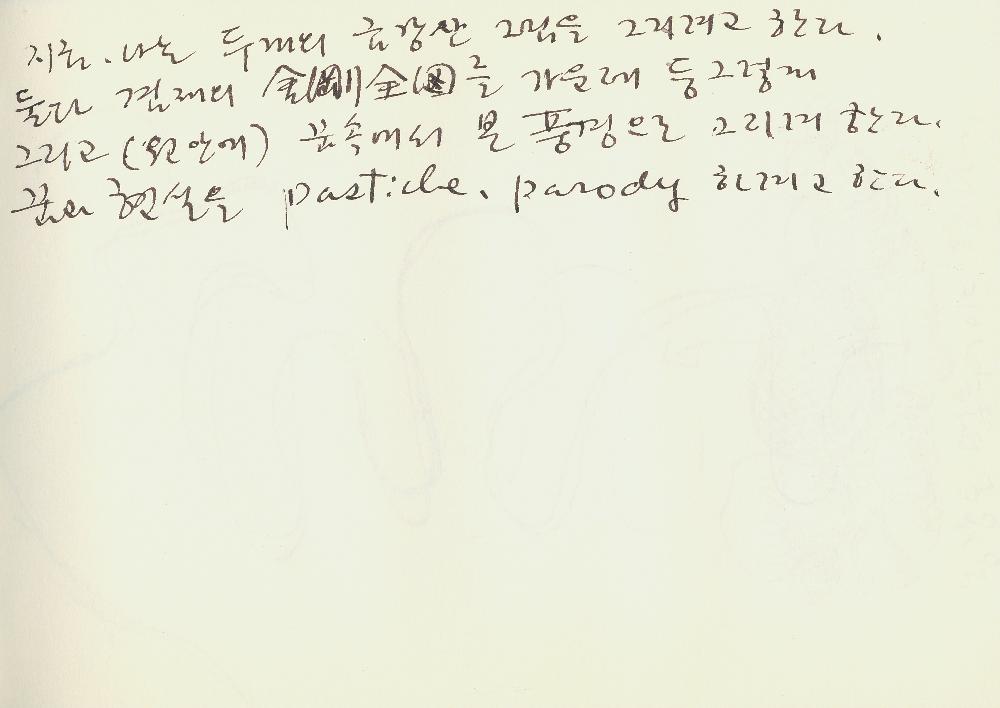 지금. 나는 두개의 금강산 그림을 그리려고 한다.
둘다 겸재의 金剛全図를 가운데 둥그렇게
그리고 (원안에) 꿈속에서 본 풍경으로 그리려 한다.
꿈과 현실을 pastiche, parody 하려고 한다.